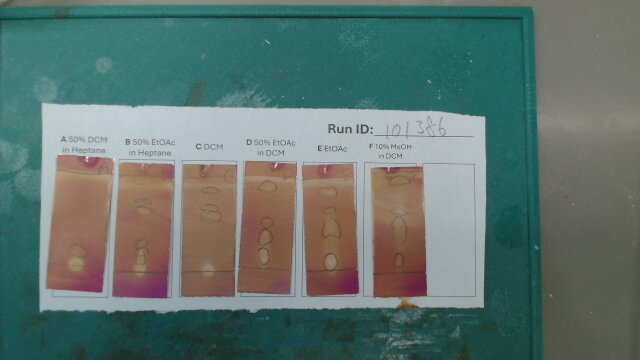 Run ID: 101386
A 50% DCM
in Heptane
B 50% EtOAc
in Heptane
C DCM
D 50% EtOAc
in DCM
E EtOAc
F 10% MeOH
in DCM